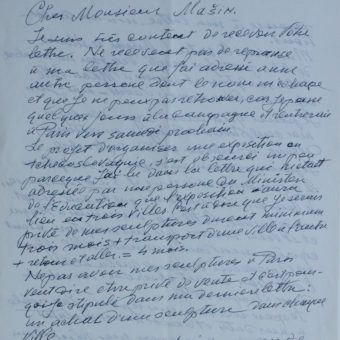 Cher Monsieur Mašin.
Je suis très content de recevoir votre
lettre. Ne recevant pas de réponse
à ma lettre que j'ai adressé à une
autre personne dont le nom m'échappe
et que je ne peux pas retrouver, car je passe
quelques jours à la campagne et rentrerais
à Paris vers samedi prochain.
Le projet d'organiser une exposition en
Tchécoslovaquie, s'est obscurci un peu
parce que j'ai lu dans la lettre que m'était
adressée par une personne du Ministère
de l'Education que l'exposition aura
lieu en trois villes c'est à dire que je serais
privé de mes sculptures durant minimum
trois mois + transport d'une ville à l'autre
+ retour et aller = 4 mois.
Ne pas avoir mes sculptures à Paris
veut dire être privé de vente et c'est pour-
quoi je stipulé dans ma dernière lettre:
un achat d'une sculpture dans chaque
ville